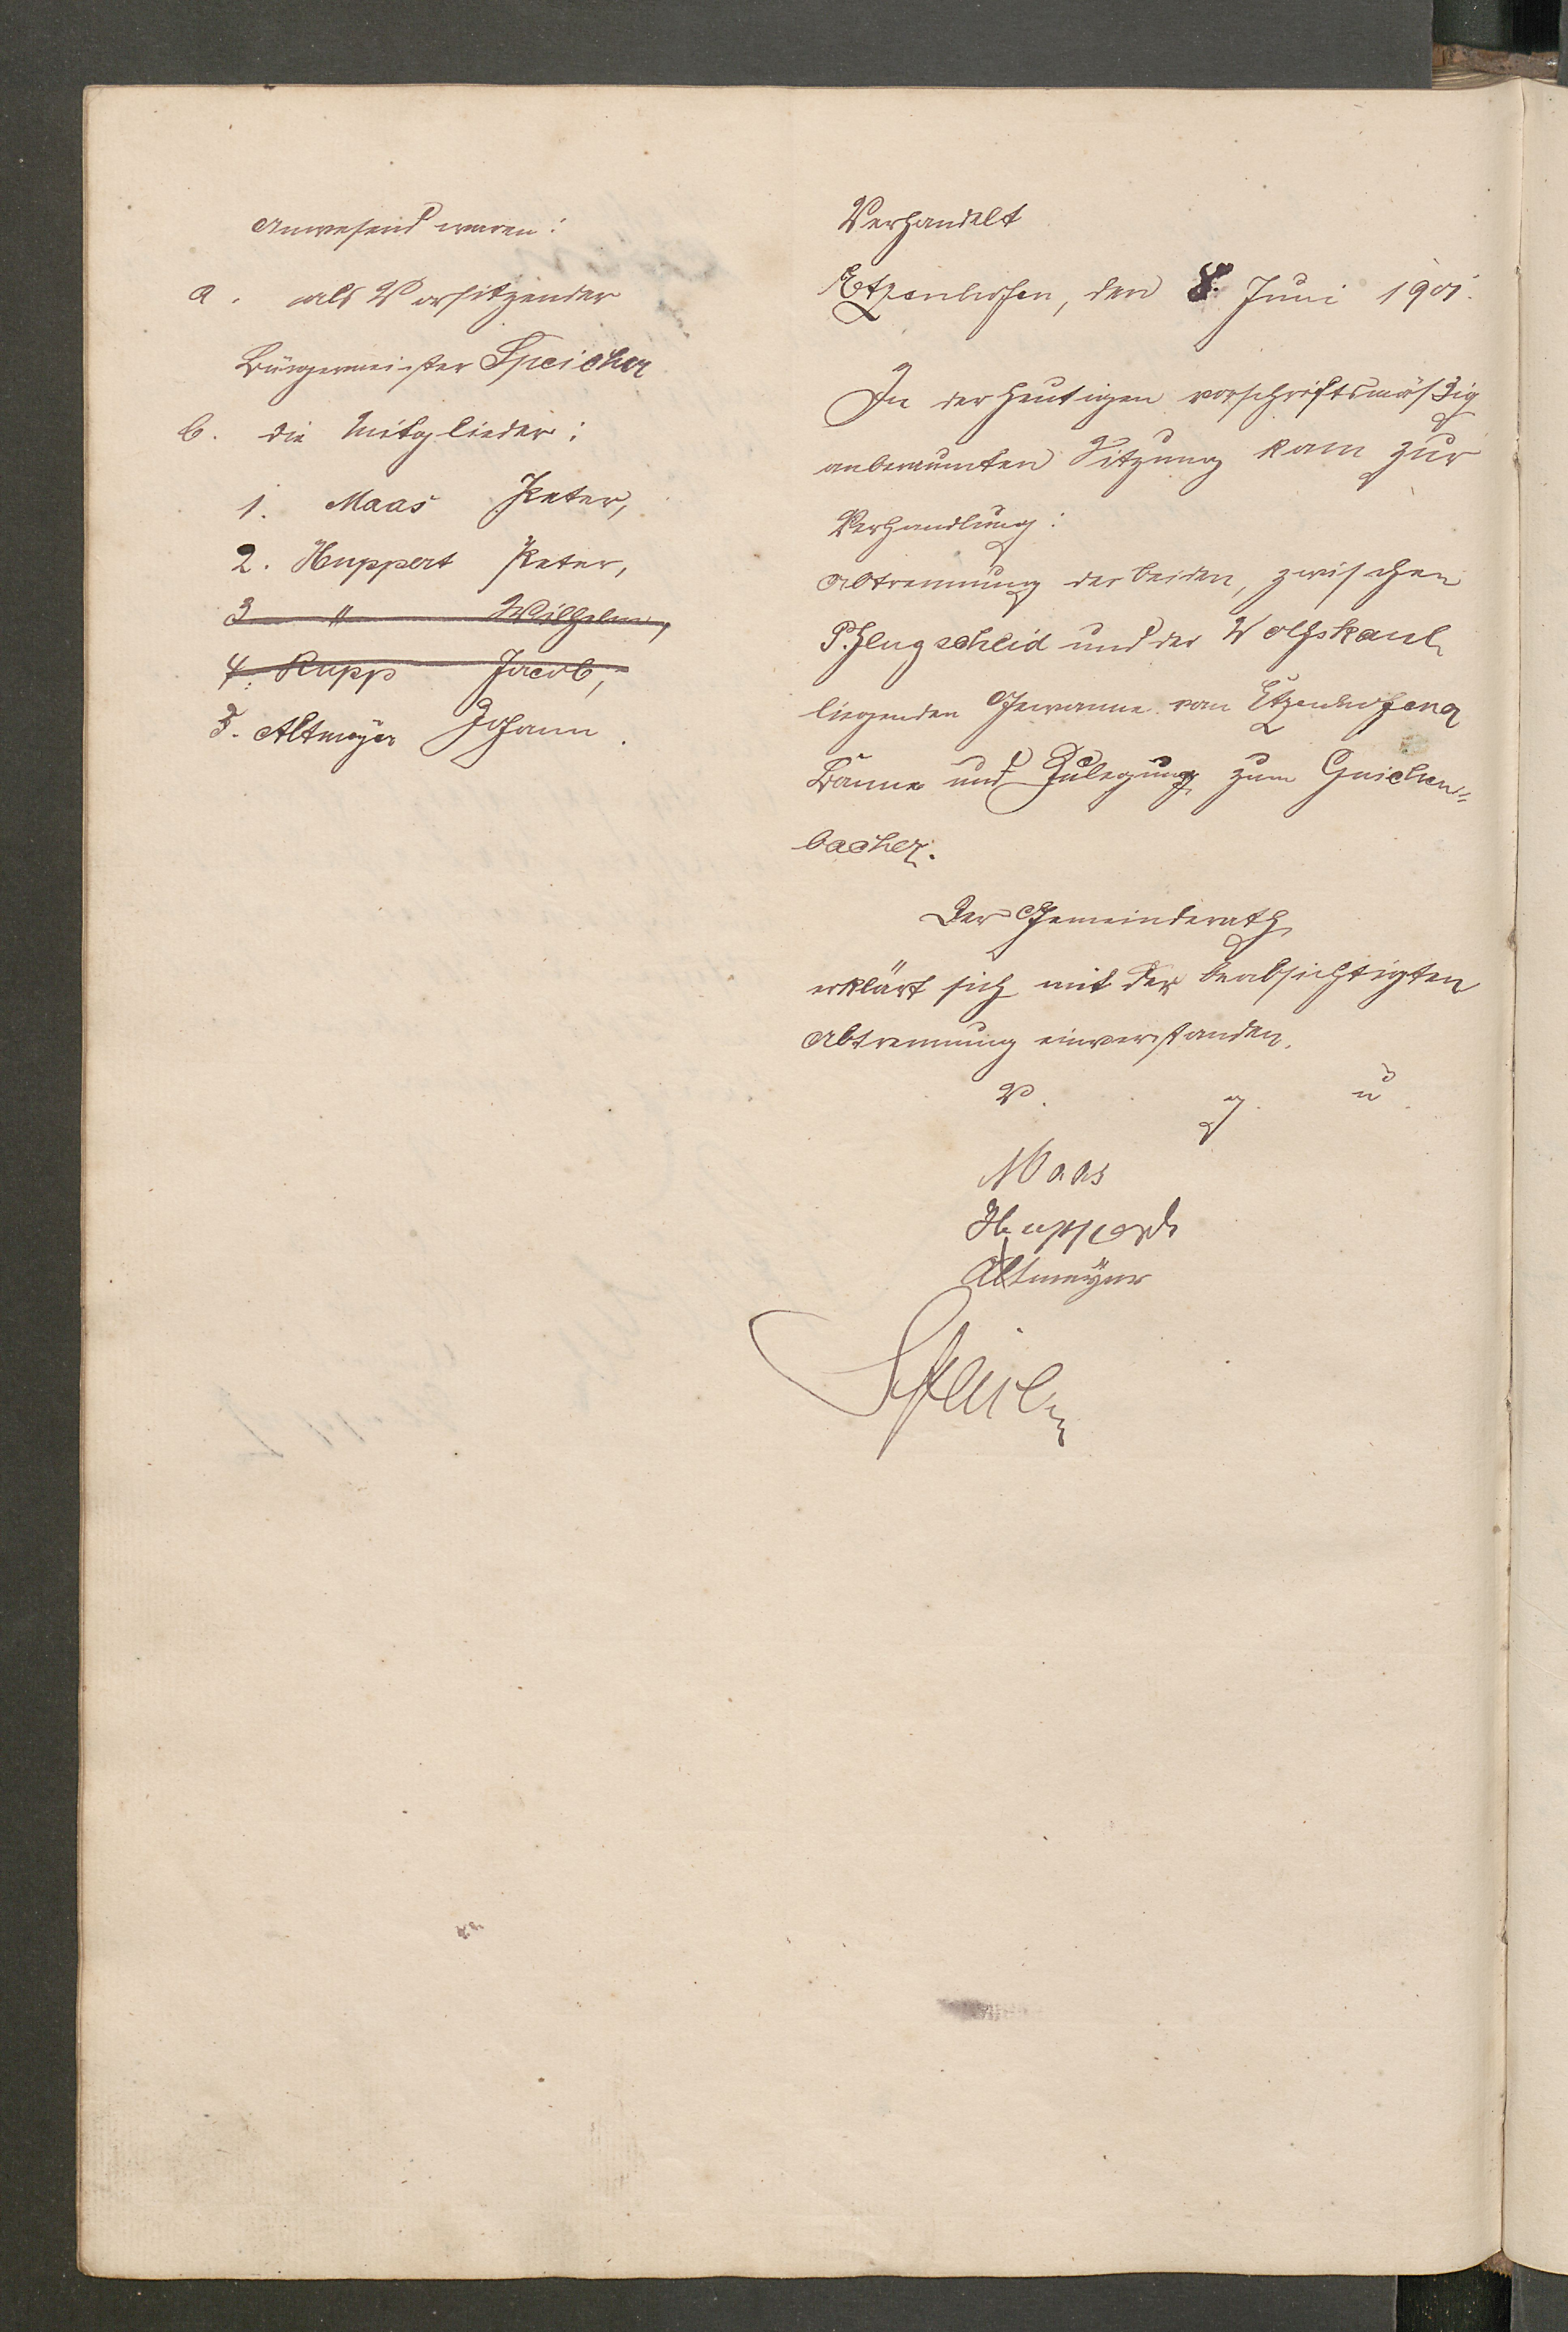 Anwesend waren:
a. als Vorsitzender
Bürgermeister Speicher
b. die Mitglieder:
1. Maas Peter,
2. Huppert Peter,
3 " Wilhelm,
4. Rupp Jacob,
5. Altmeyer Johann.
Verhandelt
Etzenhofen, den 8. Juni 1901.
In der heutigen vorschriftsmäßig
anberaumten Sitzung kam zur
Verhandlung:
Abtrennung der beiden, zwischen
und der Wolfskaul
liegenden Gewanne vom Etzenhofener
Banne und Zulegung zum Guichen-
bacher.
Der Gemeinderath
erklärt sich mit der beabsichtigten
Abtrennung einverstanden.
V. g. u.
Maas
Huppert
Altmeyer
Speicher